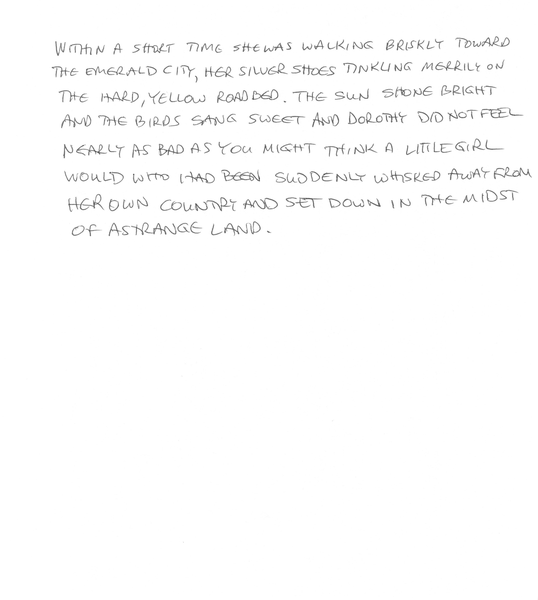 WITHIN A SHORT TIME SHE WAS WALKING BRISKLY TOWARD
THE EMERALD CITY, HER SILVER SHOES TINKLING MERRILY ON
THE HARD, YELLOW ROADBED. THE SUN SHONE BRIGHT
AND THE BIRDS SANG SWEET AND DOROTHY DID NOT FEEL
NEARLY AS BAD AS YOU MIGHT THINK A LITTLE GIRL
WOULD WHO HAD BEEN SUDDENLY WHISKED AWAY FROM
HER OWN COUNTRY AND SET DOWN IN THE MIDST
OF A STRANGE LAND.